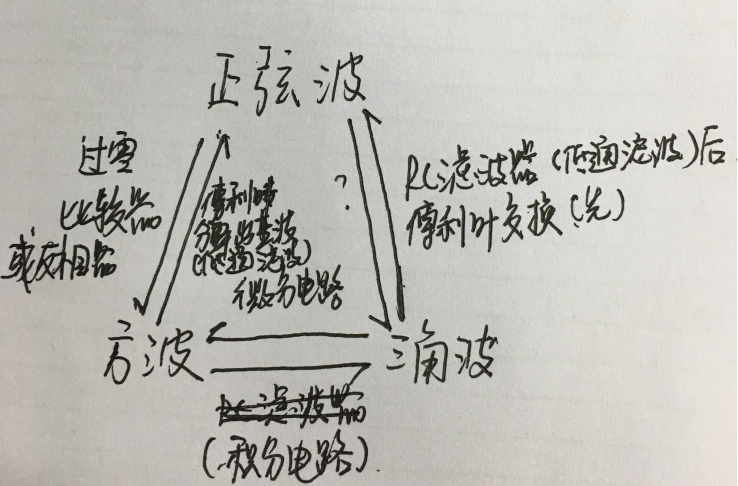 正弦波
过零
比较器
或反相器
傅利叶
分解出基波
(低通滤波)
?
RC滤波器(低通滤波)后
傅利叶变换(先)
微分电路
方波
三角波
RC滤波器
(积分电路)